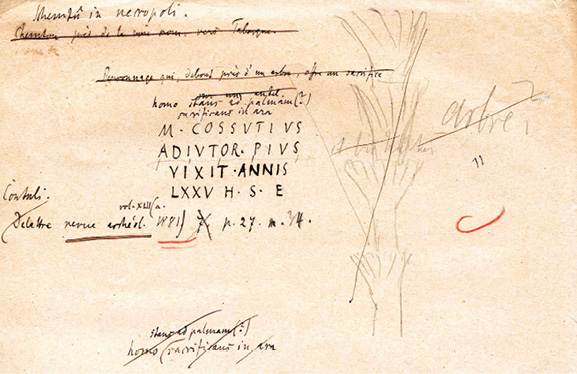 Chemtû in necropoli.
Chemtou près de la voie rom. vers Tabarque.
Personnage qui, debout près d'un arbre, offre un sacrifice
sur un autel
homo stans ad palmam (?)
sacrificans in ara
M · COSSVTIVS
ADIVTOR · PIVS
VIXIT · ANNIS
LXXV H · S · E
Contuli.
Delattre revue archéol. vol. XLI (a. 1881) p. 27. n. 34.
arbre?
stans ad palmam (?)
homo sacrificans in ara